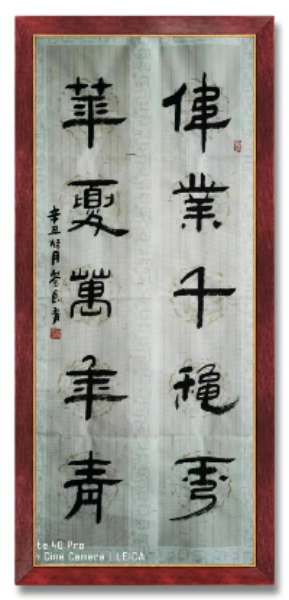 偉業千穐秀
華夏萬年青
辛丑
te 40 Pro
Cine Camera | LEICA